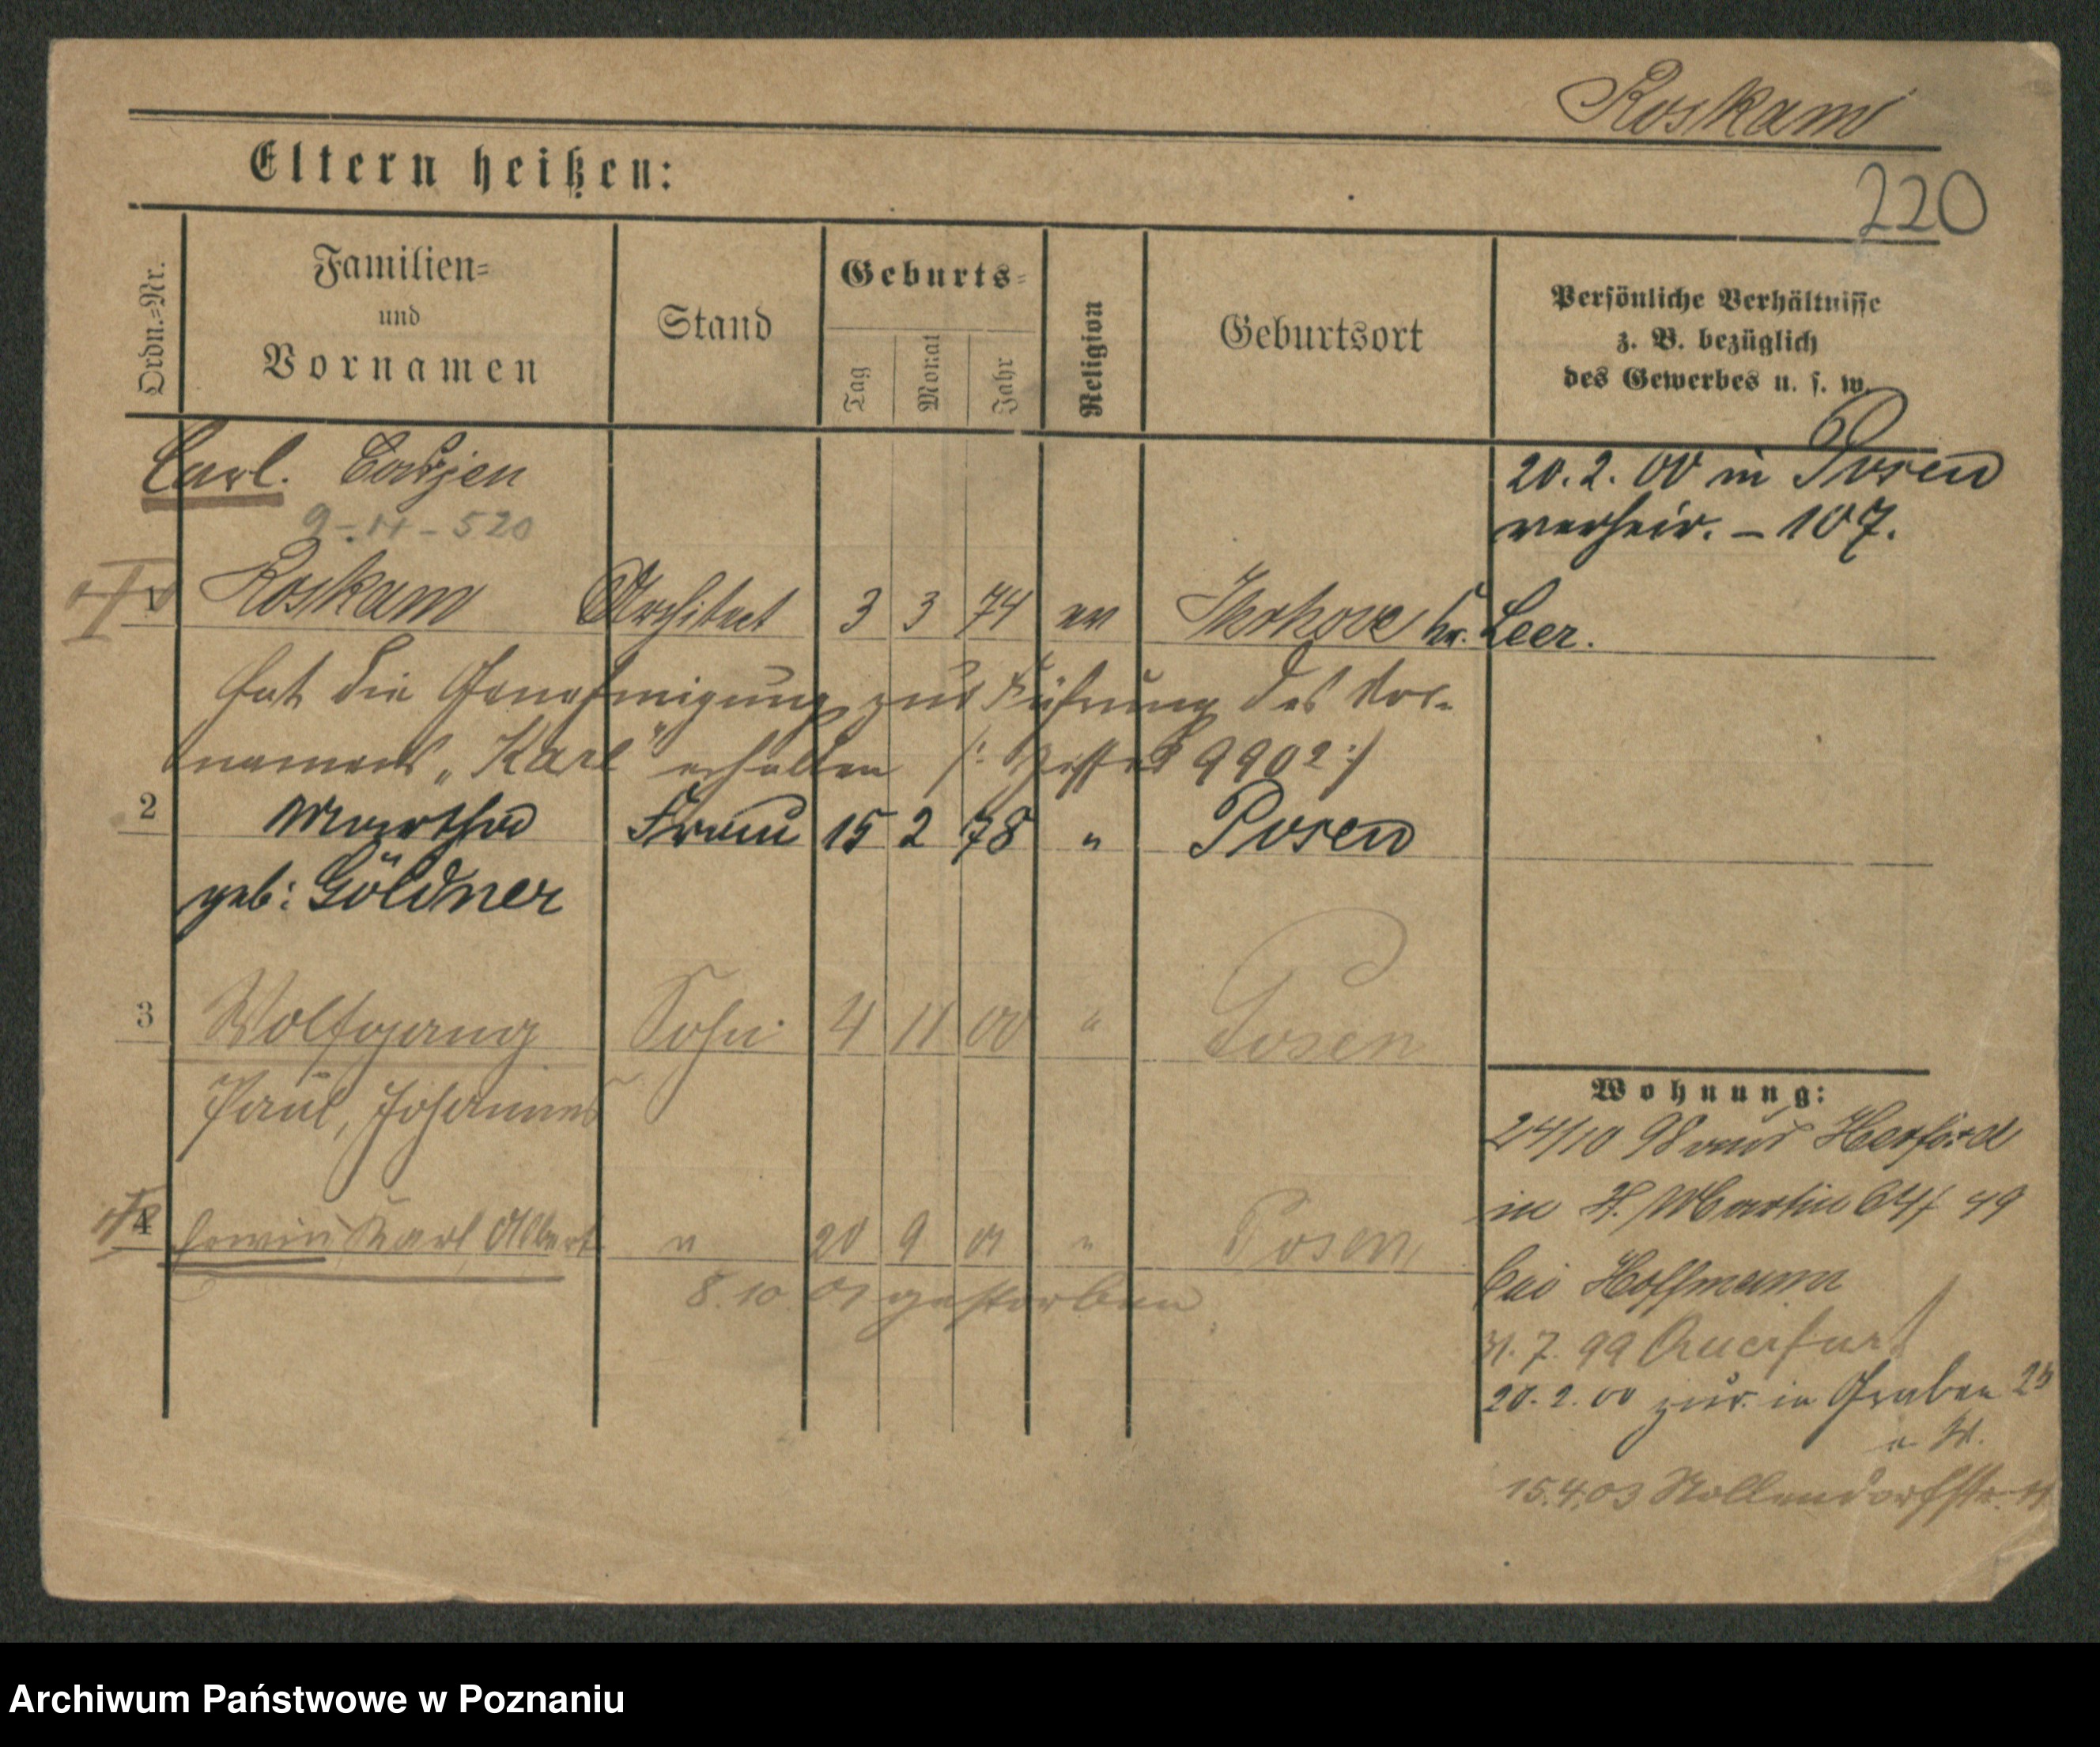 Roskam
Eltern heißen:
220
Ordn.=Nr.
Familien=
und
Vornamen
Stand
Geburts=
Tag
Monat
Jahr
Religion
Geburtsort
Persönliche Verhältnisse
z. B. bezüglich
des Gewerbes u. s. w.
Carl.
20.2.00 in Posen
verheir. – 107.
1 Roskam Architect 3 3 74 ev Ihrhove Kr. Leer.
hat die Genehmigung zur Führung des Vor-
namens „Karl" erhalten
2 Martha Frau 15 2 78 " Posen
geb: Göldner
3 Wolfgang Sohn 4 11 00 " Posen
Paul, Johannes
4 Erwin Karl Albert " 20 9 01 " Posen
8.10.01 gestorben
Wohnung:
24/10 98 aus Herford
in St. Martin 64
bei Hoffmann
31.7.99 Querfurt
20.2.00 zur. in Graben 25
15.4.03 Nollendorfstr.
Archiwum Państwowe w Poznaniu